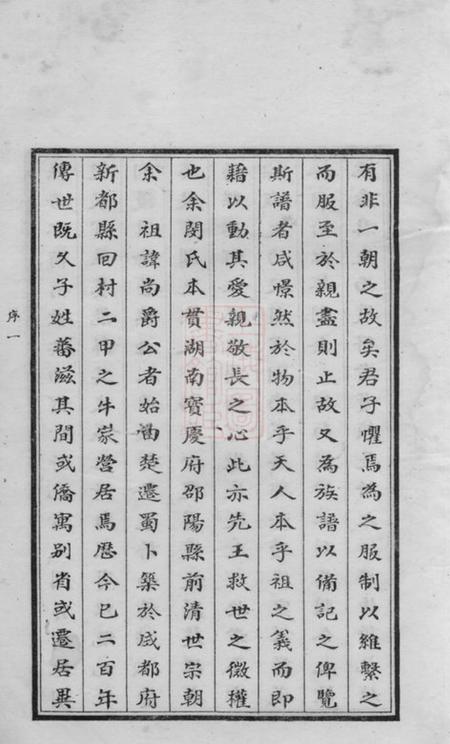 有非一朝之故矣君子懼焉為之服制以維繫之
而服至於親盡則止故又為族譜以備記之俾覽
斯譜者咸憬然於物本乎天人本乎祖之義而即
藉以動其愛親敬長之心此亦先王救世之微權
也余閔氏本貫湖南寶慶府邵陽縣前清世宗朝
余 祖諱尚爵公者始由楚遷蜀卜築於成都府
新都縣回村二甲之牛家營居焉歷今已二百年
傳世既久子姓蕃滋其間或僑寓別省或遷居異
序一